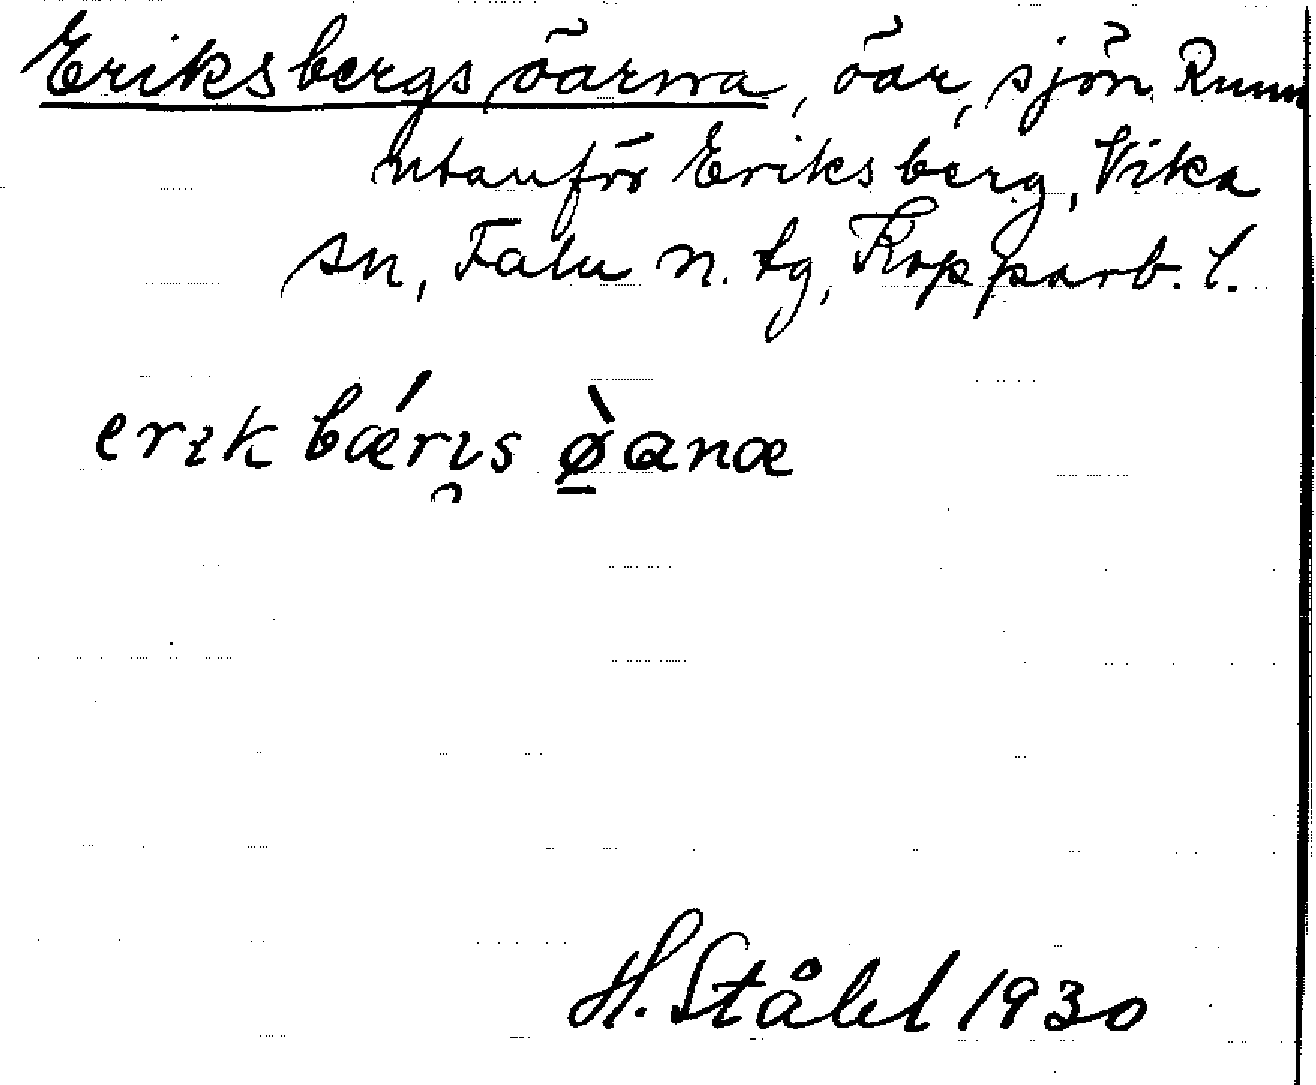 Eriksbergsöarna, öar, sjön Runn
utanför Eriksberg, Vika
sn, Falu n. tg, Kopparb. l.
erɩk bǽrɩs ø̀ɑnæ
H. Ståhl 1930